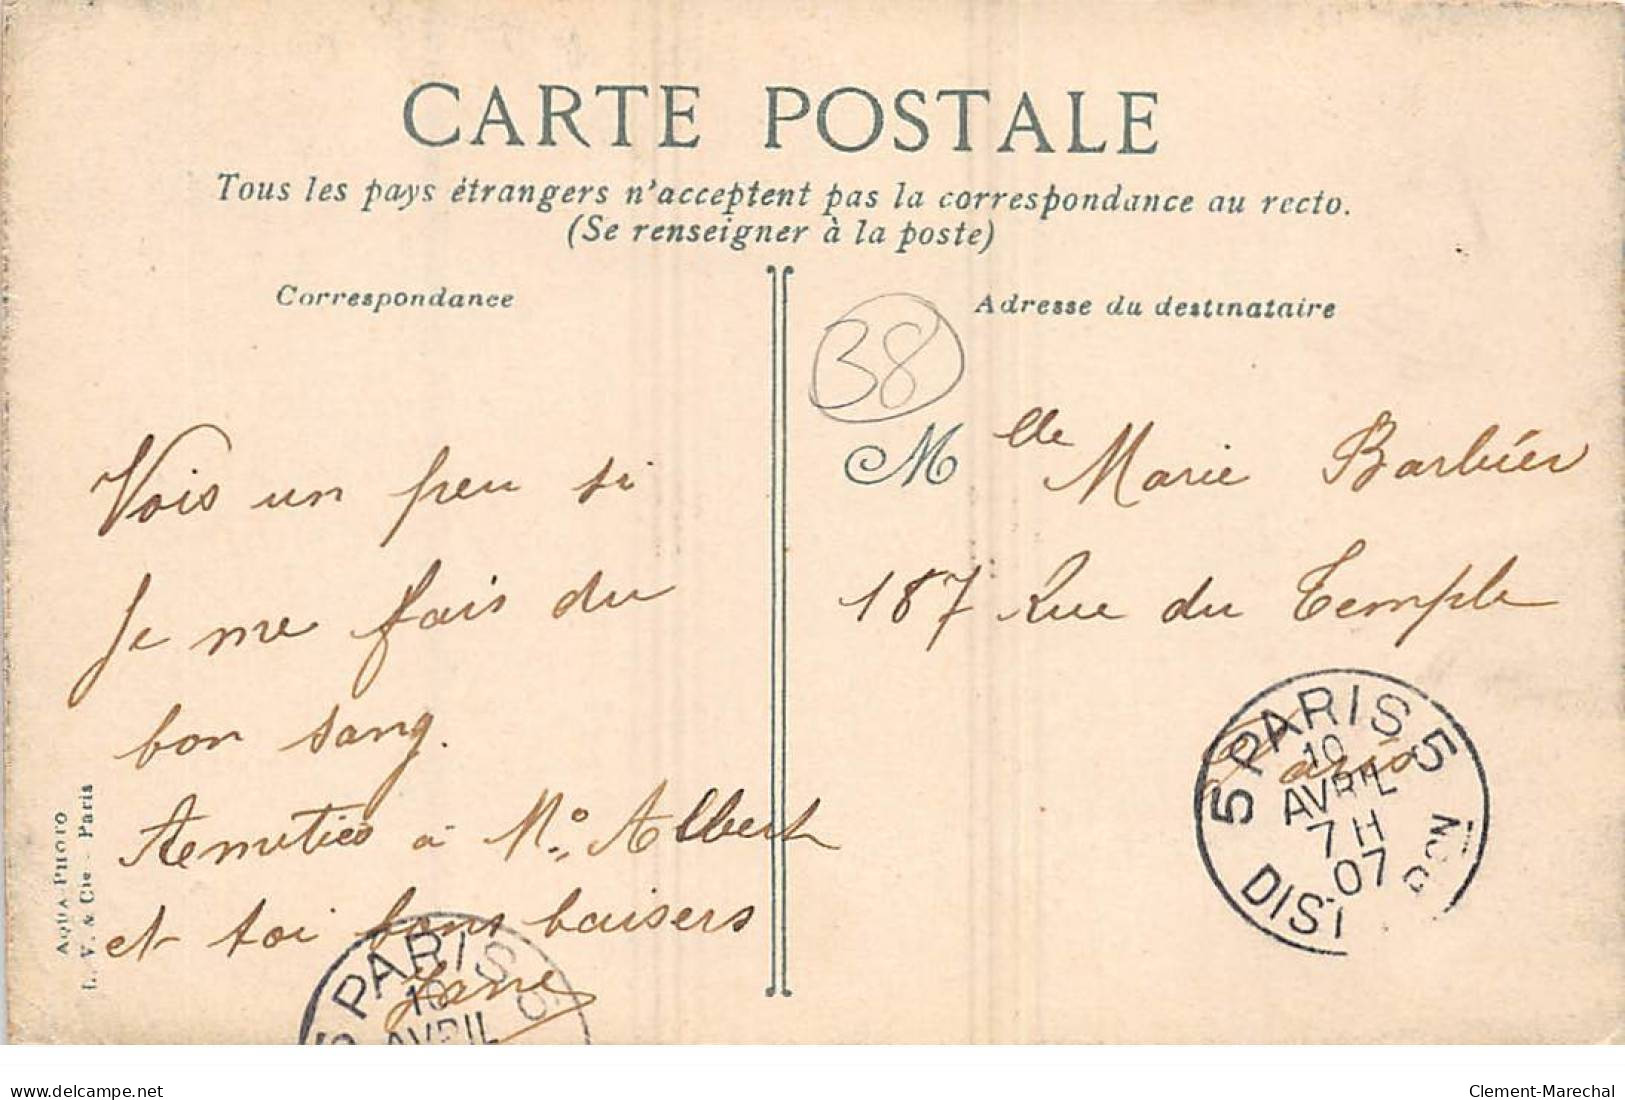 CARTE POSTALE
Tous les pays étrangers n'acceptent pas la correspondance au recto.
(Se renseigner à la poste)
Correspondance
Adresse du destinataire
38
Vois un peu si
je me fais du
bon sang.
Amitiés à M. Albert
et toi bons baisers
M lle Marie Barbier
187 Rue du Temple
Paris
5 PARIS 5
10
AVRIL
7 H
07
DIST
5 PARIS 5
10
AVRIL
AQUA-PHOTO
L. V. & Cie - Paris
delcampe.net
Clement-Marechal